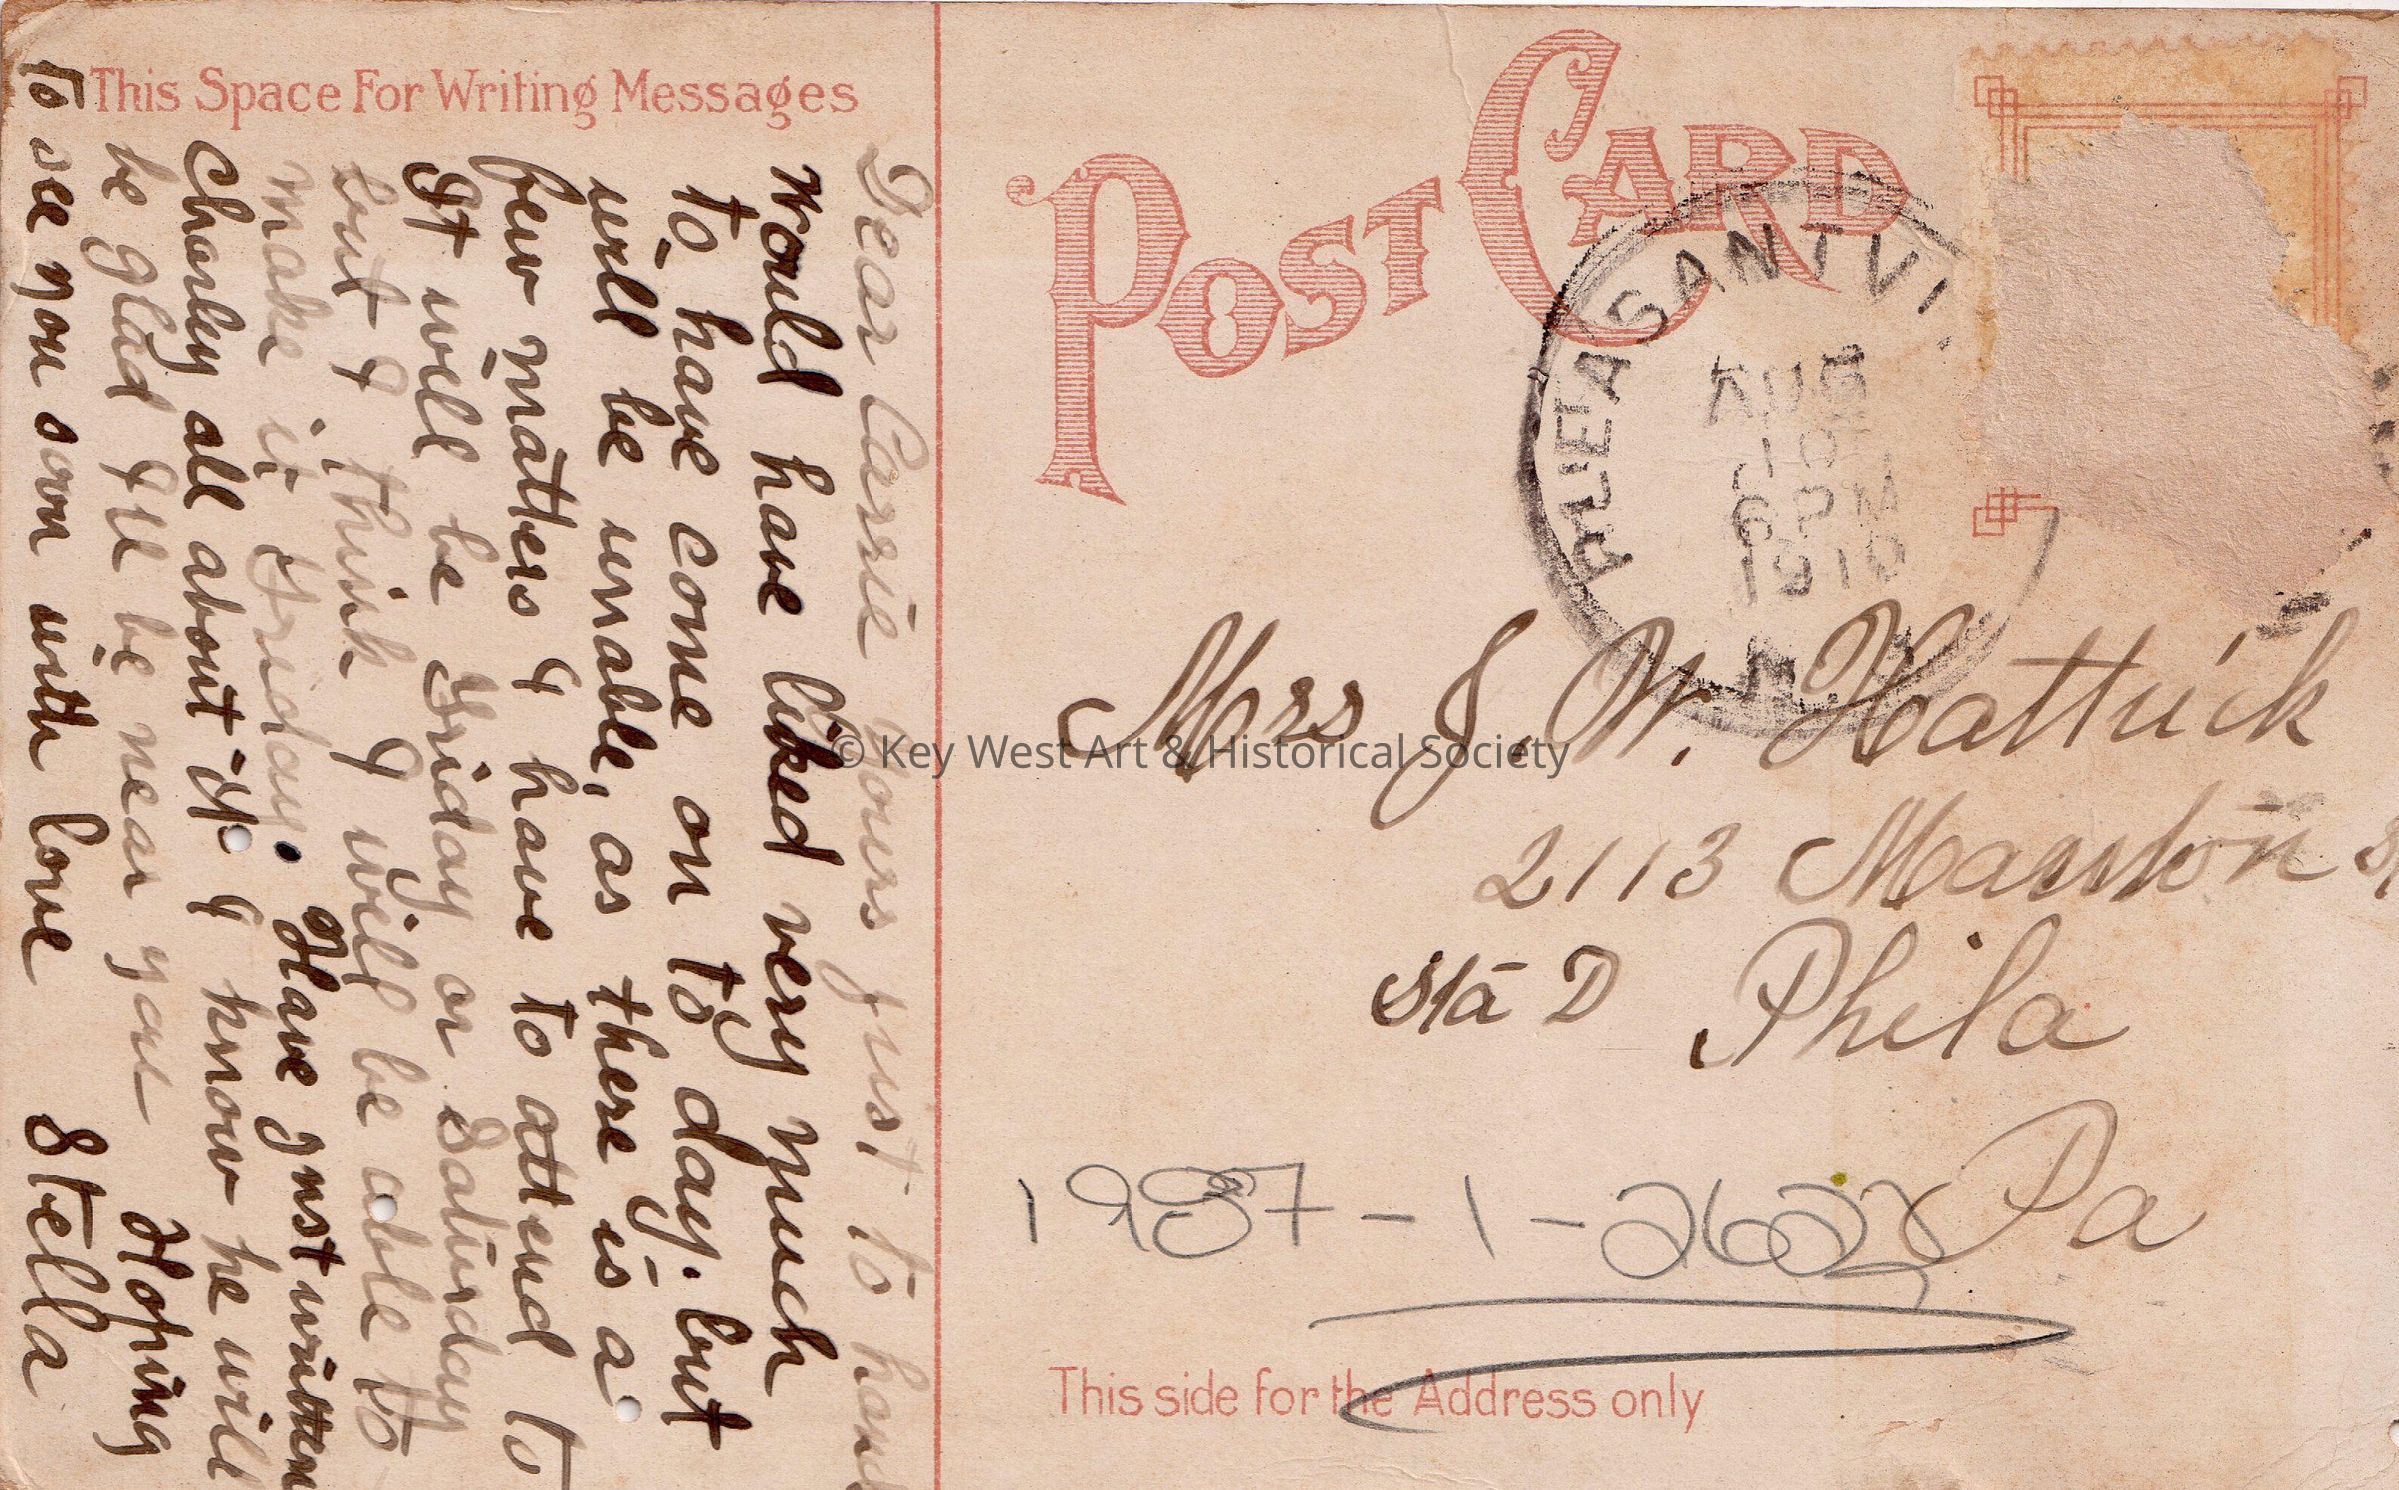 This Space For Writing Messages
Dear Carrie yours just to hand
would have liked very much
to have come on to day. but
will be unable, as there is a
few matters I have to attend to
It will be Friday or Saturday
but I think I will be able to
make it Friday. Have just written
Charley all about it. I know he will
be glad I'll be near you Hoping
to see you soon with love Stella
POST CARD
PLEASANTVI
AUG
10
6 PM
1910
N
Mrs J. W. Hattrick
2113 Marston St
Sta D Phila
Pa
1987-1-2622
This side for the Address only
© Key West Art & Historical Society